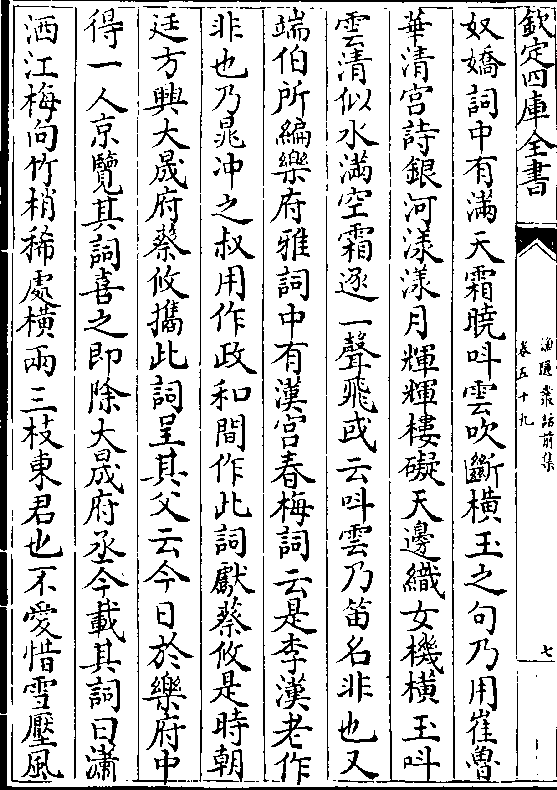 欽定四庫全書
漁隱叢話前集
卷五十九
七
奴嬌詞中有滿天霜曉呌雲吹斷橫玉之句乃用崔魯
華清宫詩銀河漾漾月輝輝樓礙天邊織女機橫玉呌
雲清似水滿空霜逐一聲飛或云呌雲乃笛名非也又
端伯所編樂府雅詞中有漢宫春梅詞云是李漢老作
非也乃晁冲之叔用作政和間作此詞獻蔡攸是時朝
廷方興大晟府蔡攸攜此詞呈其父云今日於樂府中
得一人京覽其詞喜之即除大晟府丞今載其詞曰瀟
洒江梅向竹梢稀處橫兩三枝東君也不愛惜雪壓風